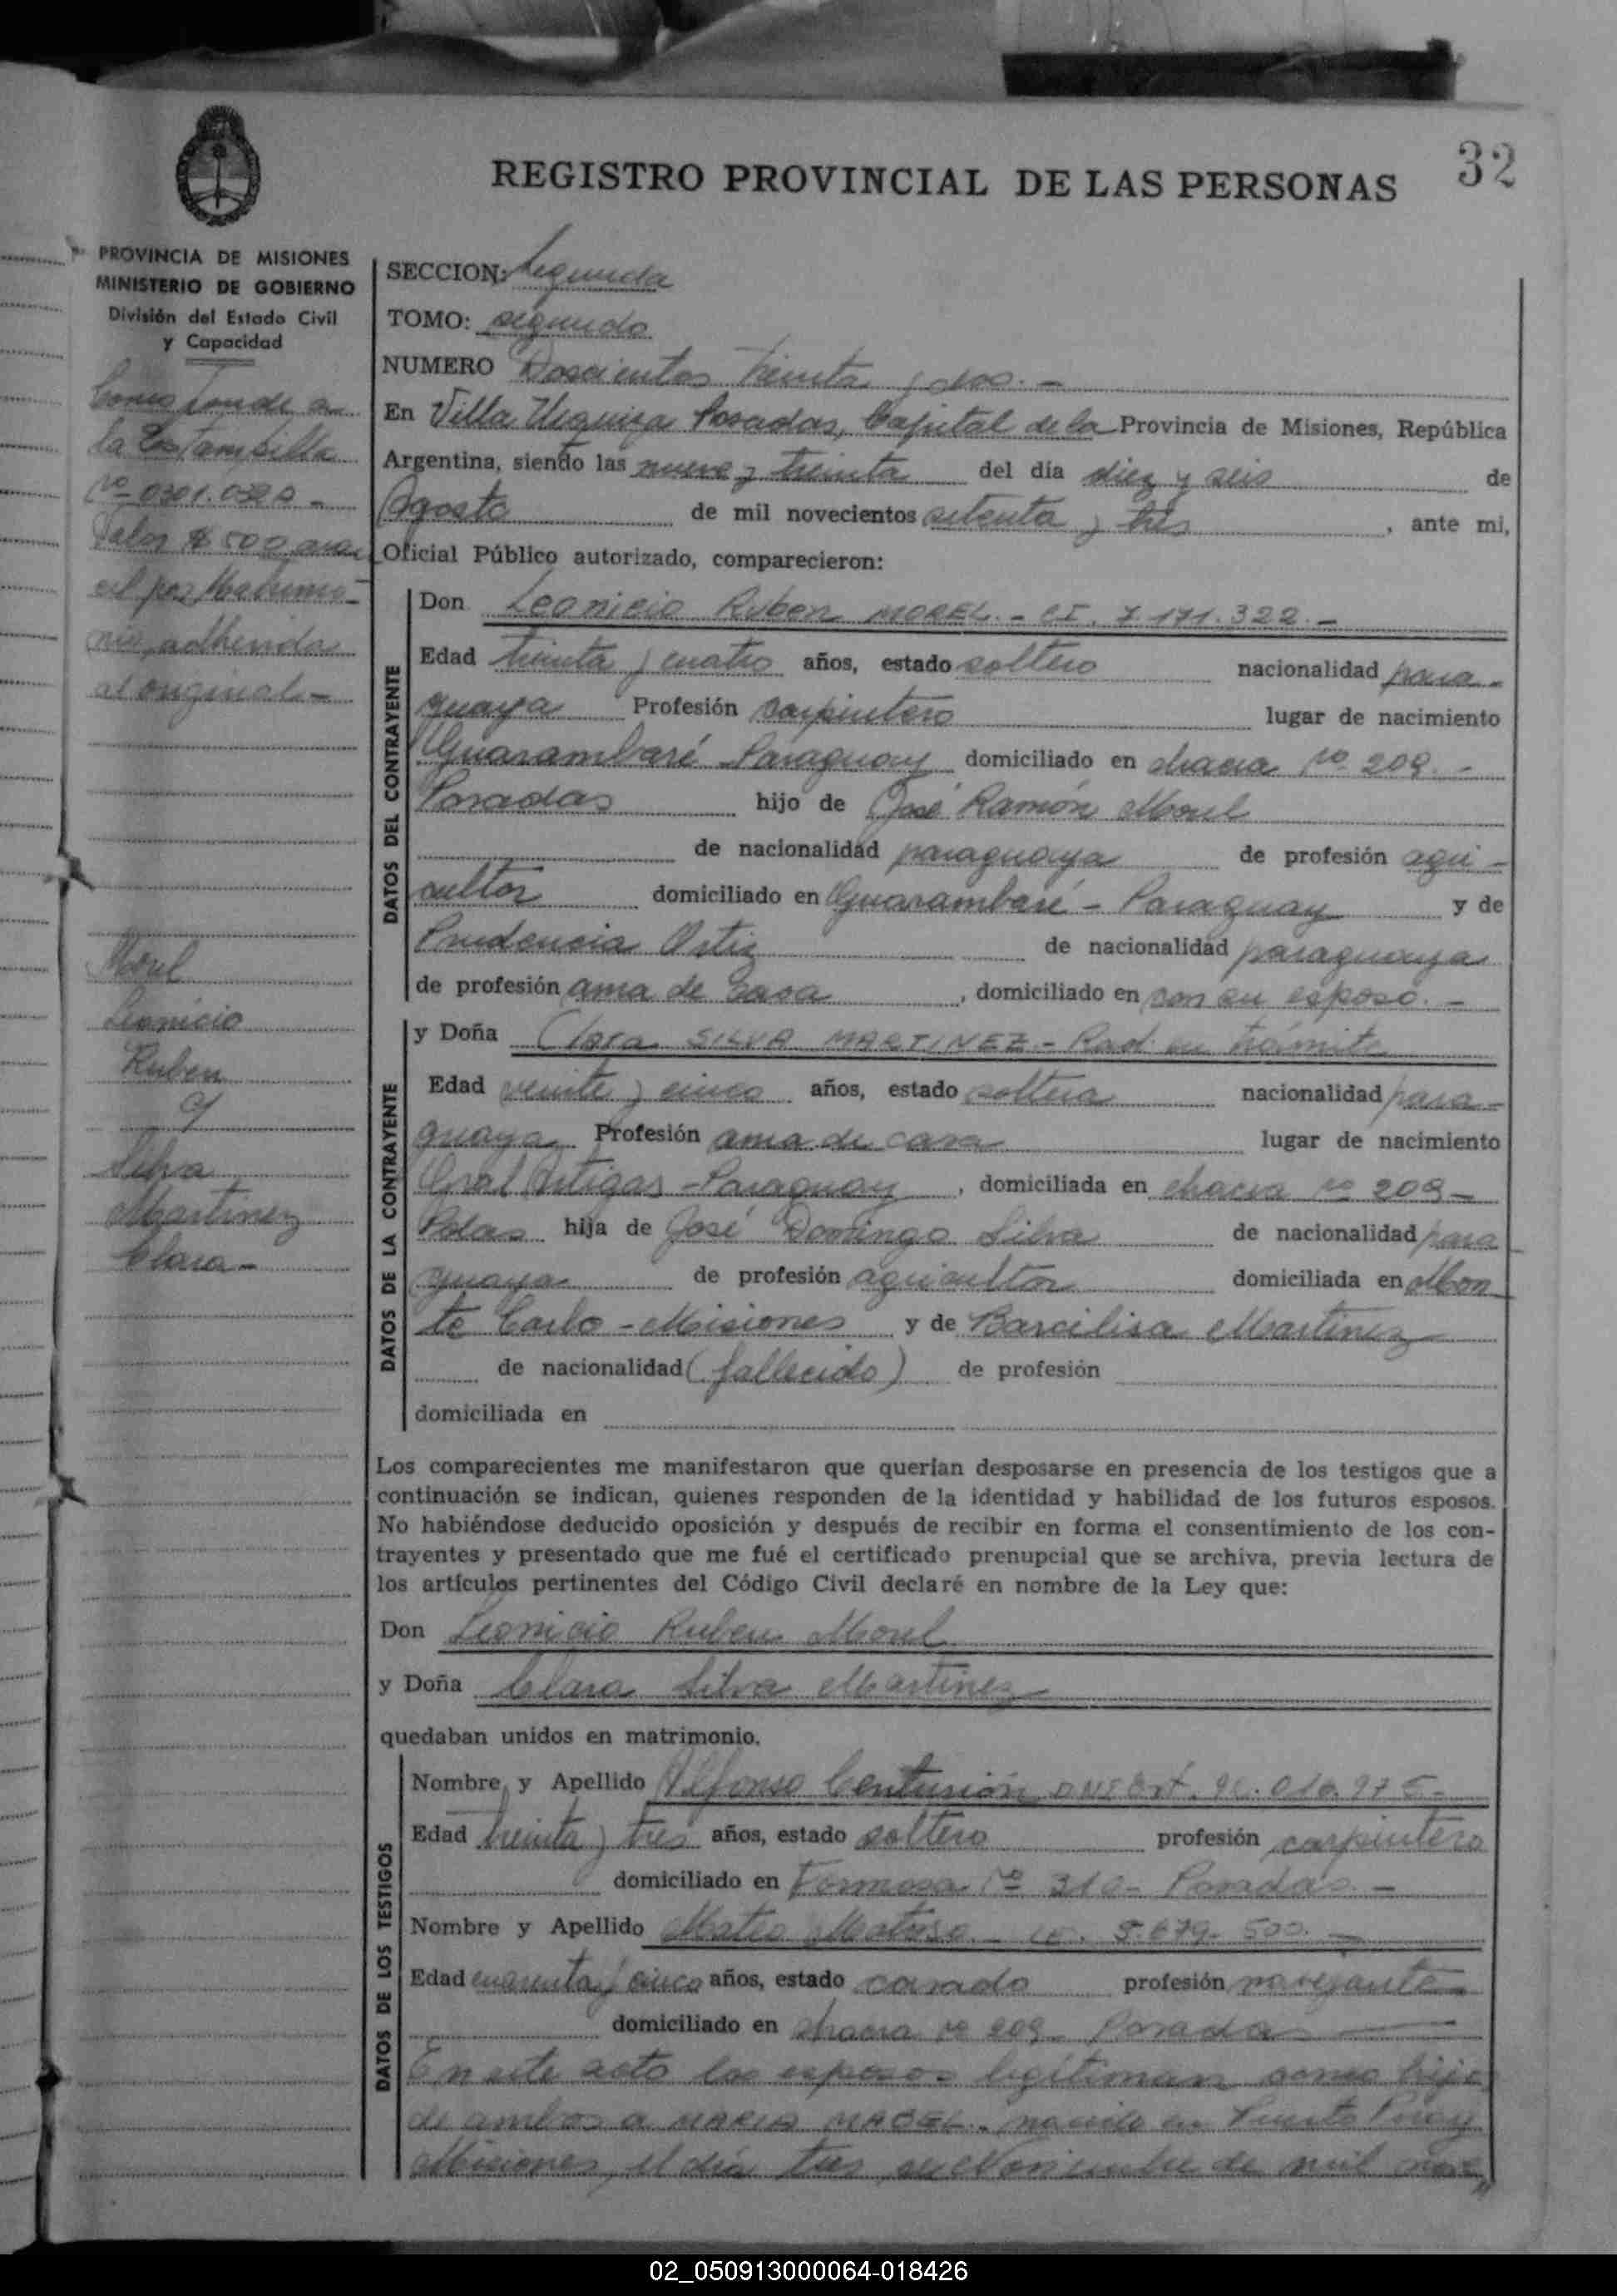 32
REGISTRO PROVINCIAL DE LAS PERSONAS
PROVINCIA DE MISIONES
MINISTERIO DE GOBIERNO
División del Estado Civil
y Capacidad
Corresponde a
la Estampilla
Nº
Valor $ 500
por Matrimo-
nio, adherida
al original.-
Morel
Leonicio
Ruben
y
Silva
Martinez
Clara-
SECCION: Segunda
TOMO: segundo
NUMERO Doscientos treinta y dos. -
En Villa Urquiza Posadas, Capital de la Provincia de Misiones, República
Argentina, siendo las nueve y treinta del día diez y seis de
Agosto de mil novecientos setenta y tres, ante mi,
Oficial Público autorizado, comparecieron:
DATOS DEL CONTRAYENTE
Don Leonicio Ruben MOREL. - CI. 7.171.322. -
Edad treinta y cuatro años, estado soltero nacionalidad para-
guaya Profesión carpintero lugar de nacimiento
Guarambaré Paraguay domiciliado en chacra Nº 209. -
Posadas hijo de José Ramón Morel
de nacionalidad paraguaya de profesión agri-
cultor domiciliado en Guarambaré - Paraguay y de
Prudencia Ortiz de nacionalidad paraguaya
de profesión ama de casa, domiciliado en con su esposo. -
DATOS DE LA CONTRAYENTE
y Doña Clara SILVA MARTINEZ - Rad. en trámite
Edad veinte y cinco años, estado soltera nacionalidad para-
guaya Profesión ama de casa lugar de nacimiento
Gral Artigas - Paraguay, domiciliada en chacra Nº 209 -
Pdas hija de José Domingo Silva de nacionalidad para
guaya de profesión agricultor domiciliada en Mon
te Carlo - Misiones y de Barcilisa Martinez
de nacionalidad (fallecida) de profesión
domiciliada en
Los comparecientes me manifestaron que querían desposarse en presencia de los testigos que a
continuación se indican, quienes responden de la identidad y habilidad de los futuros esposos.
No habiéndose deducido oposición y después de recibir en forma el consentimiento de los con-
trayentes y presentado que me fué el certificado prenupcial que se archiva, previa lectura de
los artículos pertinentes del Código Civil declaré en nombre de la Ley que:
Don Leonicio Ruben Morel
y Doña Clara Silva Martinez
quedaban unidos en matrimonio.
DATOS DE LOS TESTIGOS
Nombre y Apellido Alfonso Centurión
Edad treinta y tres años, estado soltero profesión carpintero
domiciliado en Formosa Nº 310 - Posadas. -
Nombre y Apellido Mateo Matoso - LE. 5.679.500. -
Edad cuarenta y cinco años, estado casado profesión navegante
domiciliado en chacra Nº 209 - Posadas
En este acto los esposos legitiman como hija
de ambos a MARIA MABEL. nacida en Puerto Piray
Misiones, el día tres de Noviembre de mil nove
02_050913000064-018426